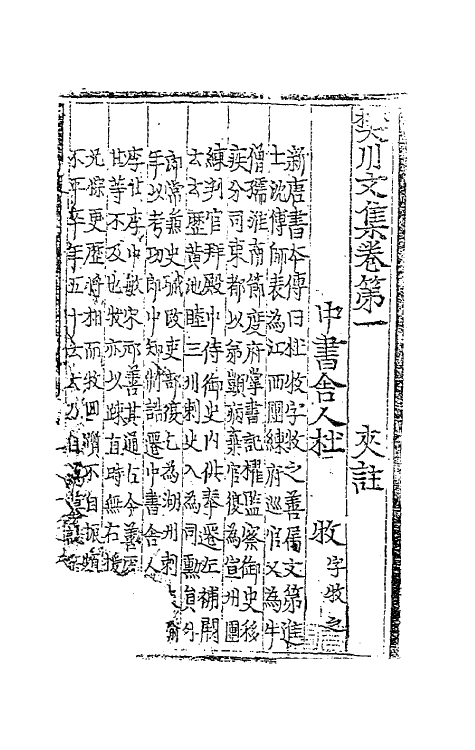 樊川文集卷第一 夾註
中書舍人杜 牧 字牧之
新唐書本傳曰杜牧字牧之善屬文第進
士沈傳師表為江西團練府巡官又為牛
僧孺淮南節度府掌書記擢監察御史移
疾分司東都以弟顗病棄官復為宣州團
練判官拜殿中侍御史內供奉遷左補闕
云云歷黃池睦三州刺史入為司勳員外
郎常兼史職改吏部復乞為湖州刺 踰
年以考功郎中知制誥遷中書舍人
李甘李中敏宋邧善其通古今善
甘等不及也牧亦以疎直時無右援
兄悰更歷將相而牧回躓不自振頗
不平卒年五十云云乃自